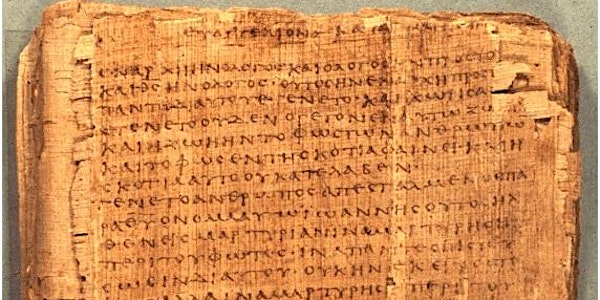 ΕΥΑΓΓΕΛΙΟΝ ΚΑΤΑ
ΕΝ ΑΡΧΗ ΗΝ Ο ΛΟΓΟϹ ΚΑΙ Ο ΛΟΓΟϹ ΗΝ ΠΡΟϹ ΤΟ
ΚΑΙ ΘϹ ΗΝ Ο ΛΟΓΟϹ· ΟΥΤΟϹ ΗΝ ΕΝ ΑΡΧΗ ΠΡΟϹ
ΠΑΝΤΑ ΔΙ ΑΥΤΟΥ ΕΓΕΝΕΤΟ ΚΑΙ ΧΩΡΙϹ Α
ΕΓΕΝΕΤΟ ΟΥΔΕΝ Ο ΓΕΓΟΝΕΝ ΕΝ ΑΥΤΩ ΖΩ
ΚΑΙ Η ΖΩΗ ΗΝ ΤΟ ΦΩϹ ΤΩΝ ΑΝΘΡΩΠΩ
ΚΑΙ ΤΟ ΦΩϹ ΕΝ ΤΗ ϹΚΟΤΙΑ ΦΑΙΝΕΙ ΚΑΙ Η
ϹΚΟΤΙΑ ΑΥΤΟ ΟΥ ΚΑΤΕΛΑΒΕΝ·
ΕΓΕΝΕΤΟ ΑΝΘΡΩΠΟϹ ΑΠΕϹΤΑΛΜΕΝΟϹ ΠΑ
ΡΑ ΘΥ ΟΝΟΜΑ ΑΥΤΩ ΙΩΑΝΝΗϹ ΟΥΤΟϹ ΗΛ
ΘΕΝ ΕΙϹ ΜΑΡΤΥΡΙΑΝ ΙΝΑ ΜΑΡΤΥΡΗϹΗ
ΠΕΡΙ ΤΟΥ ΦΩΤΟϹ· ΙΝΑ ΠΑΝΤΕϹ ΠΙϹΤΕΥ
ϹΩϹΙΝ ΔΙ ΑΥΤΟΥ· ΟΥΚ ΗΝ ΕΚΕΙΝΟϹ ΤΟ
ΑΛΛΑ ΙΝΑ ΜΑΡΤΥΡΗϹΗ ΠΕΡΙ ΤΟΥ